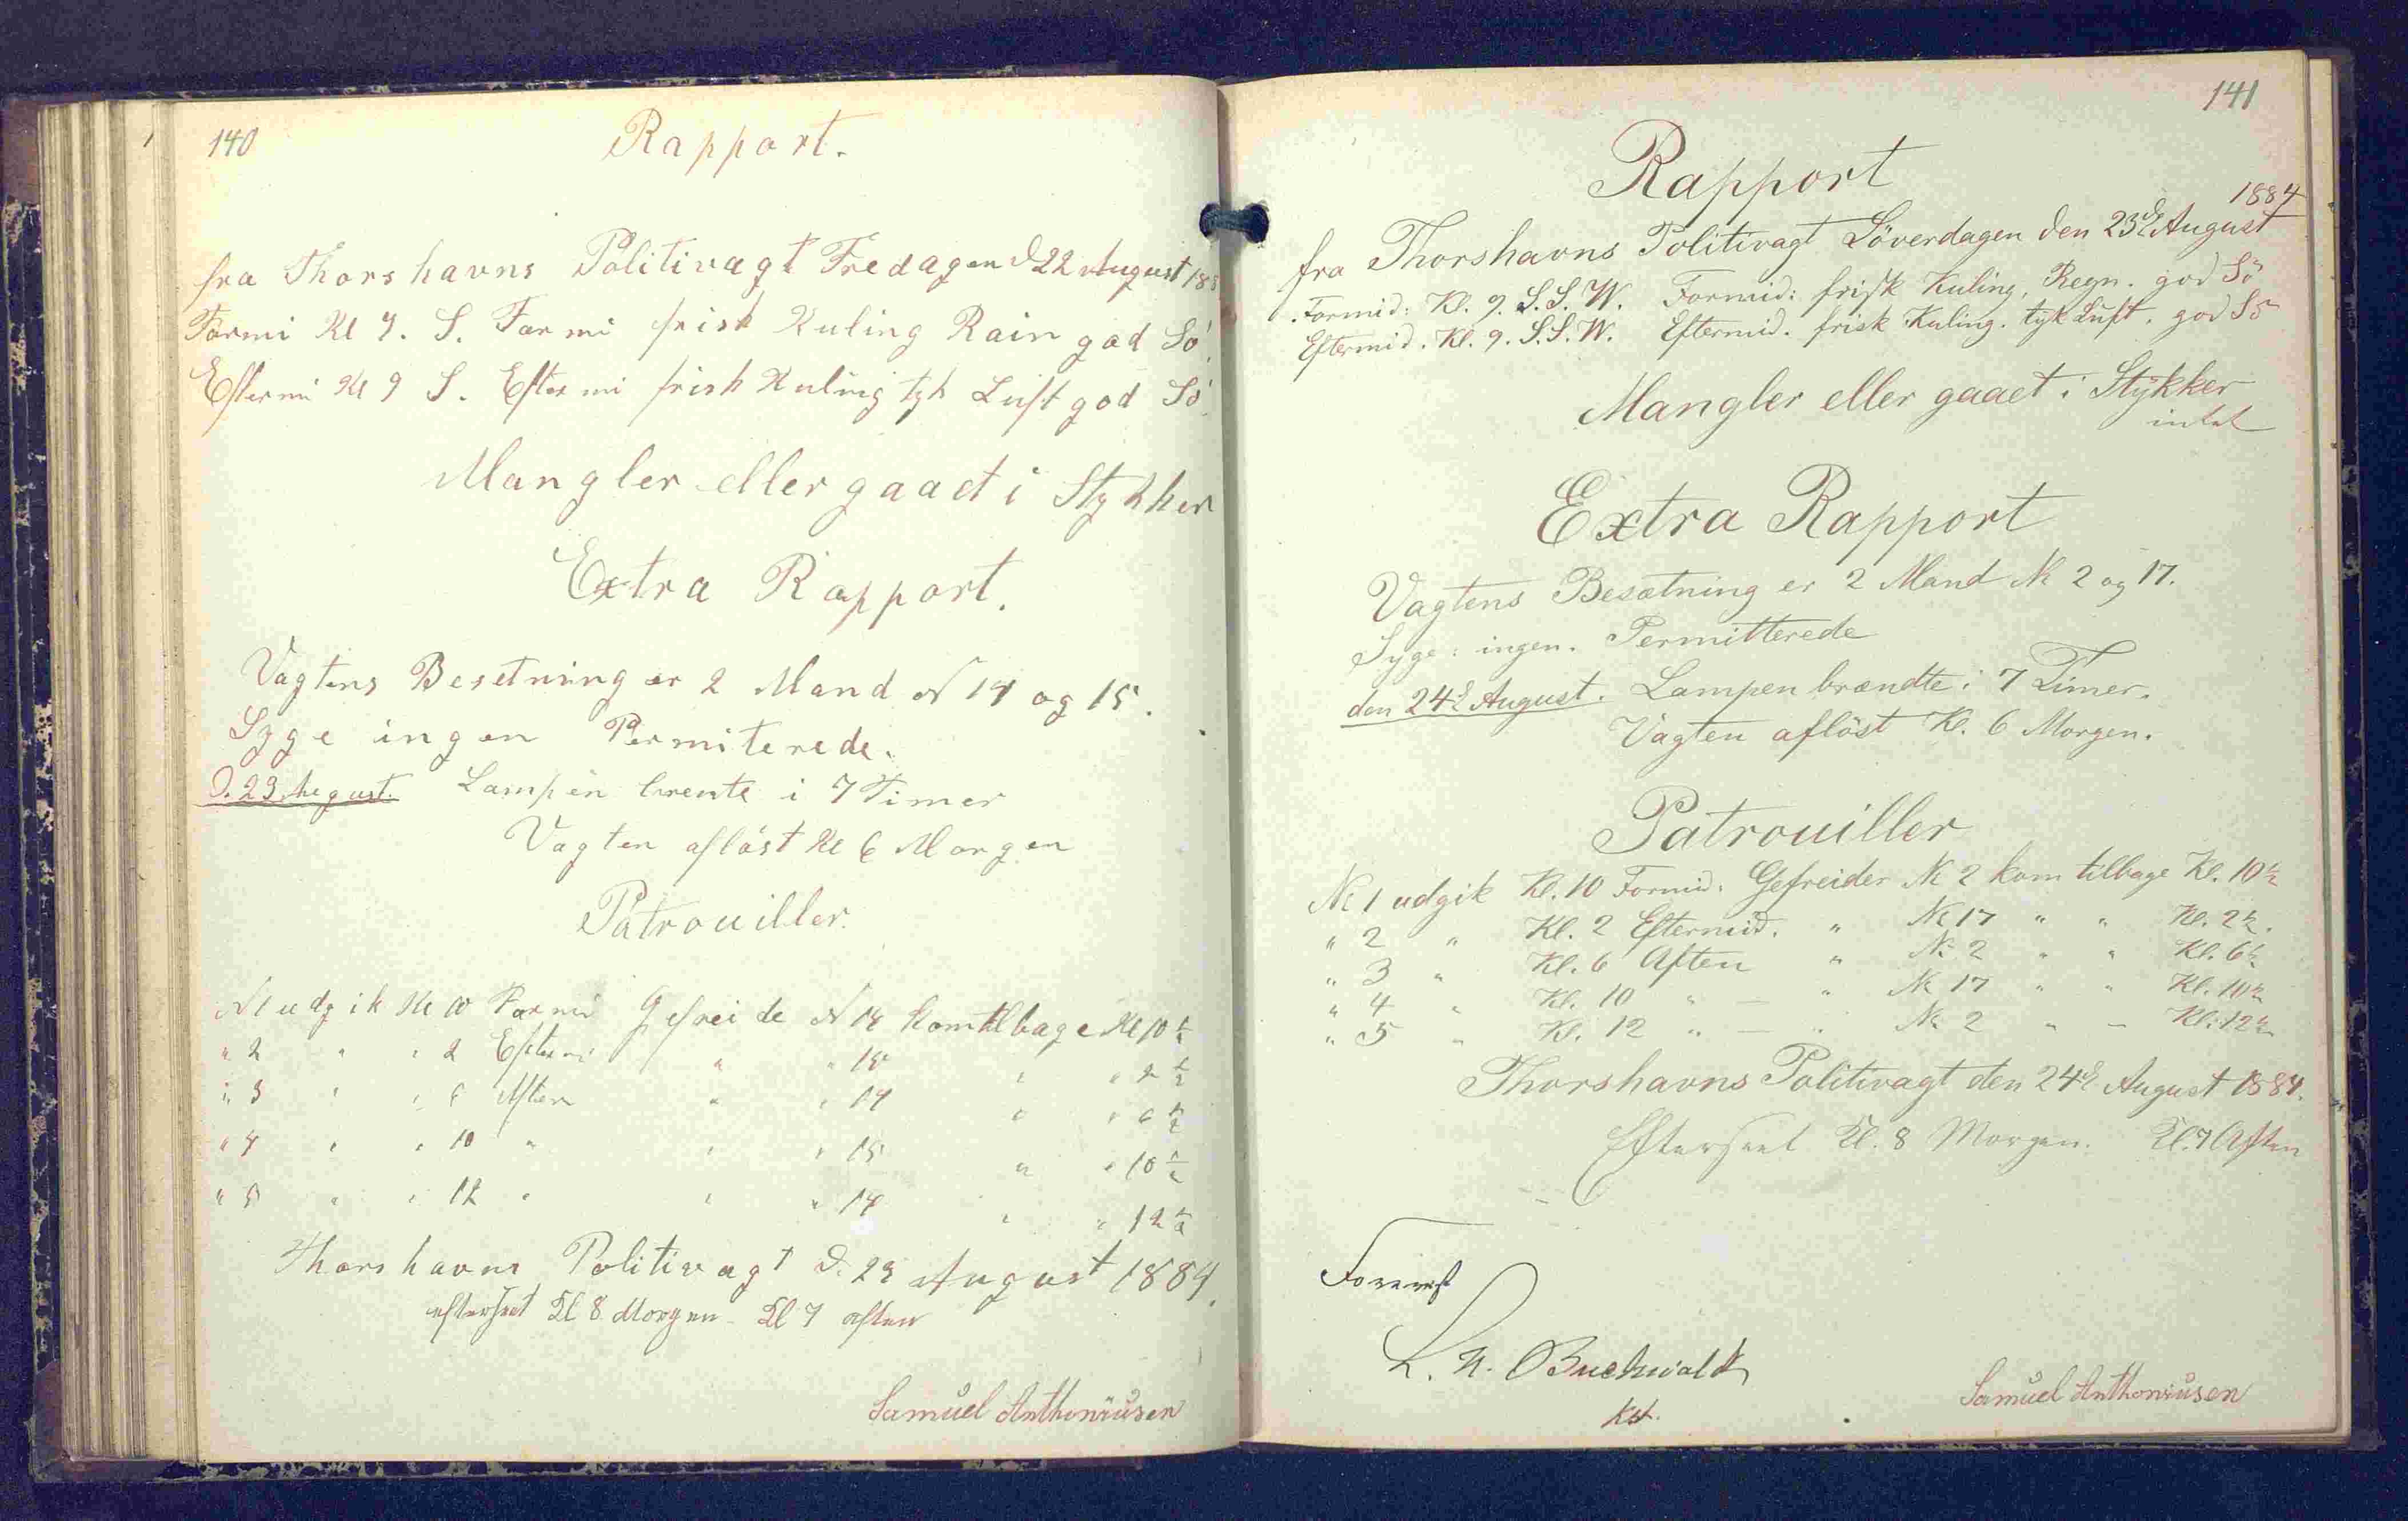 140
Rapport.
fra Thorshavns Politivagt Fredagen d 22 August 188
Formi Kl 9. S. Formi frisk Kuling Rain god Sö.
Eftermi Kl 9 S. Eftermi frisk Kuling tyk Luft god Sö
Mangler eller gaaet i Stykker
Extra Rapport.
Vagtens Besetning er 2 Mand N 14 og 15.
Syge ingen Permiterede.
D. 23 August. Lampen brente i 7 Timer
Vagten aflöst Kl 6 Morgen
Patrouiller.
N 1 udgik Kl 10 Formi Gefreide N 14 kom tilbage Kl 10 1/2
" 2 " " 2 Eftermi " " 15 " " 2 1/2
" 3 " " 6 Aften " " 14 " " 6 1/2
" 4 " " 10 " " " 15 " " 10 1/2
" 5 " " 12 " " " 14 " " 12 1/2
Thorshavns Politivagt D. 23 August 1884.
efterseet Kl 8 Morgen - Kl 7 aften
Samuel Anthoniüsen
141
Rapport
1884
fra Thorshavns Politivagt Löverdagen den 23de August
Formid: Kl. 9. S.S.W. Formid: frisk Kuling, Regn. god Sö
Eftermid. Kl. 9. S.S.W. Eftermid. frisk Kuling. tyk Luft. god Sö
Mangler eller gaaet i Stykker
intet
Extra Rapport
Vagtens Besætning er 2 Mand No 2 og 17.
Syge: ingen. Permitterede
den 24de August. Lampen brændte i 7 Timer.
Vagten aflöst Kl. 6 Morgen.
Patrouiller
No 1 udgik Kl. 10 Formid: Gefreider No 2 kom tilbage Kl. 10 1/2
" 2 " Kl. 2 Eftermid. " No 17 " " Kl. 2 1/2.
" 3 " Kl. 6 Aften " No 2 " " Kl. 6 1/2
" 4 " Kl. 10 " — " No 17 " " Kl. 10 1/2
" 5 " Kl. 12 " — " No 2 " – Kl. 12 1/2
Thorshavns Politivagt den 24de August 1884.
Efterseet Kl. 8 Morgen. Kl. 7 Aften
Forevist
Buchwaldt
Kst.
Samuel Anthoniüsen